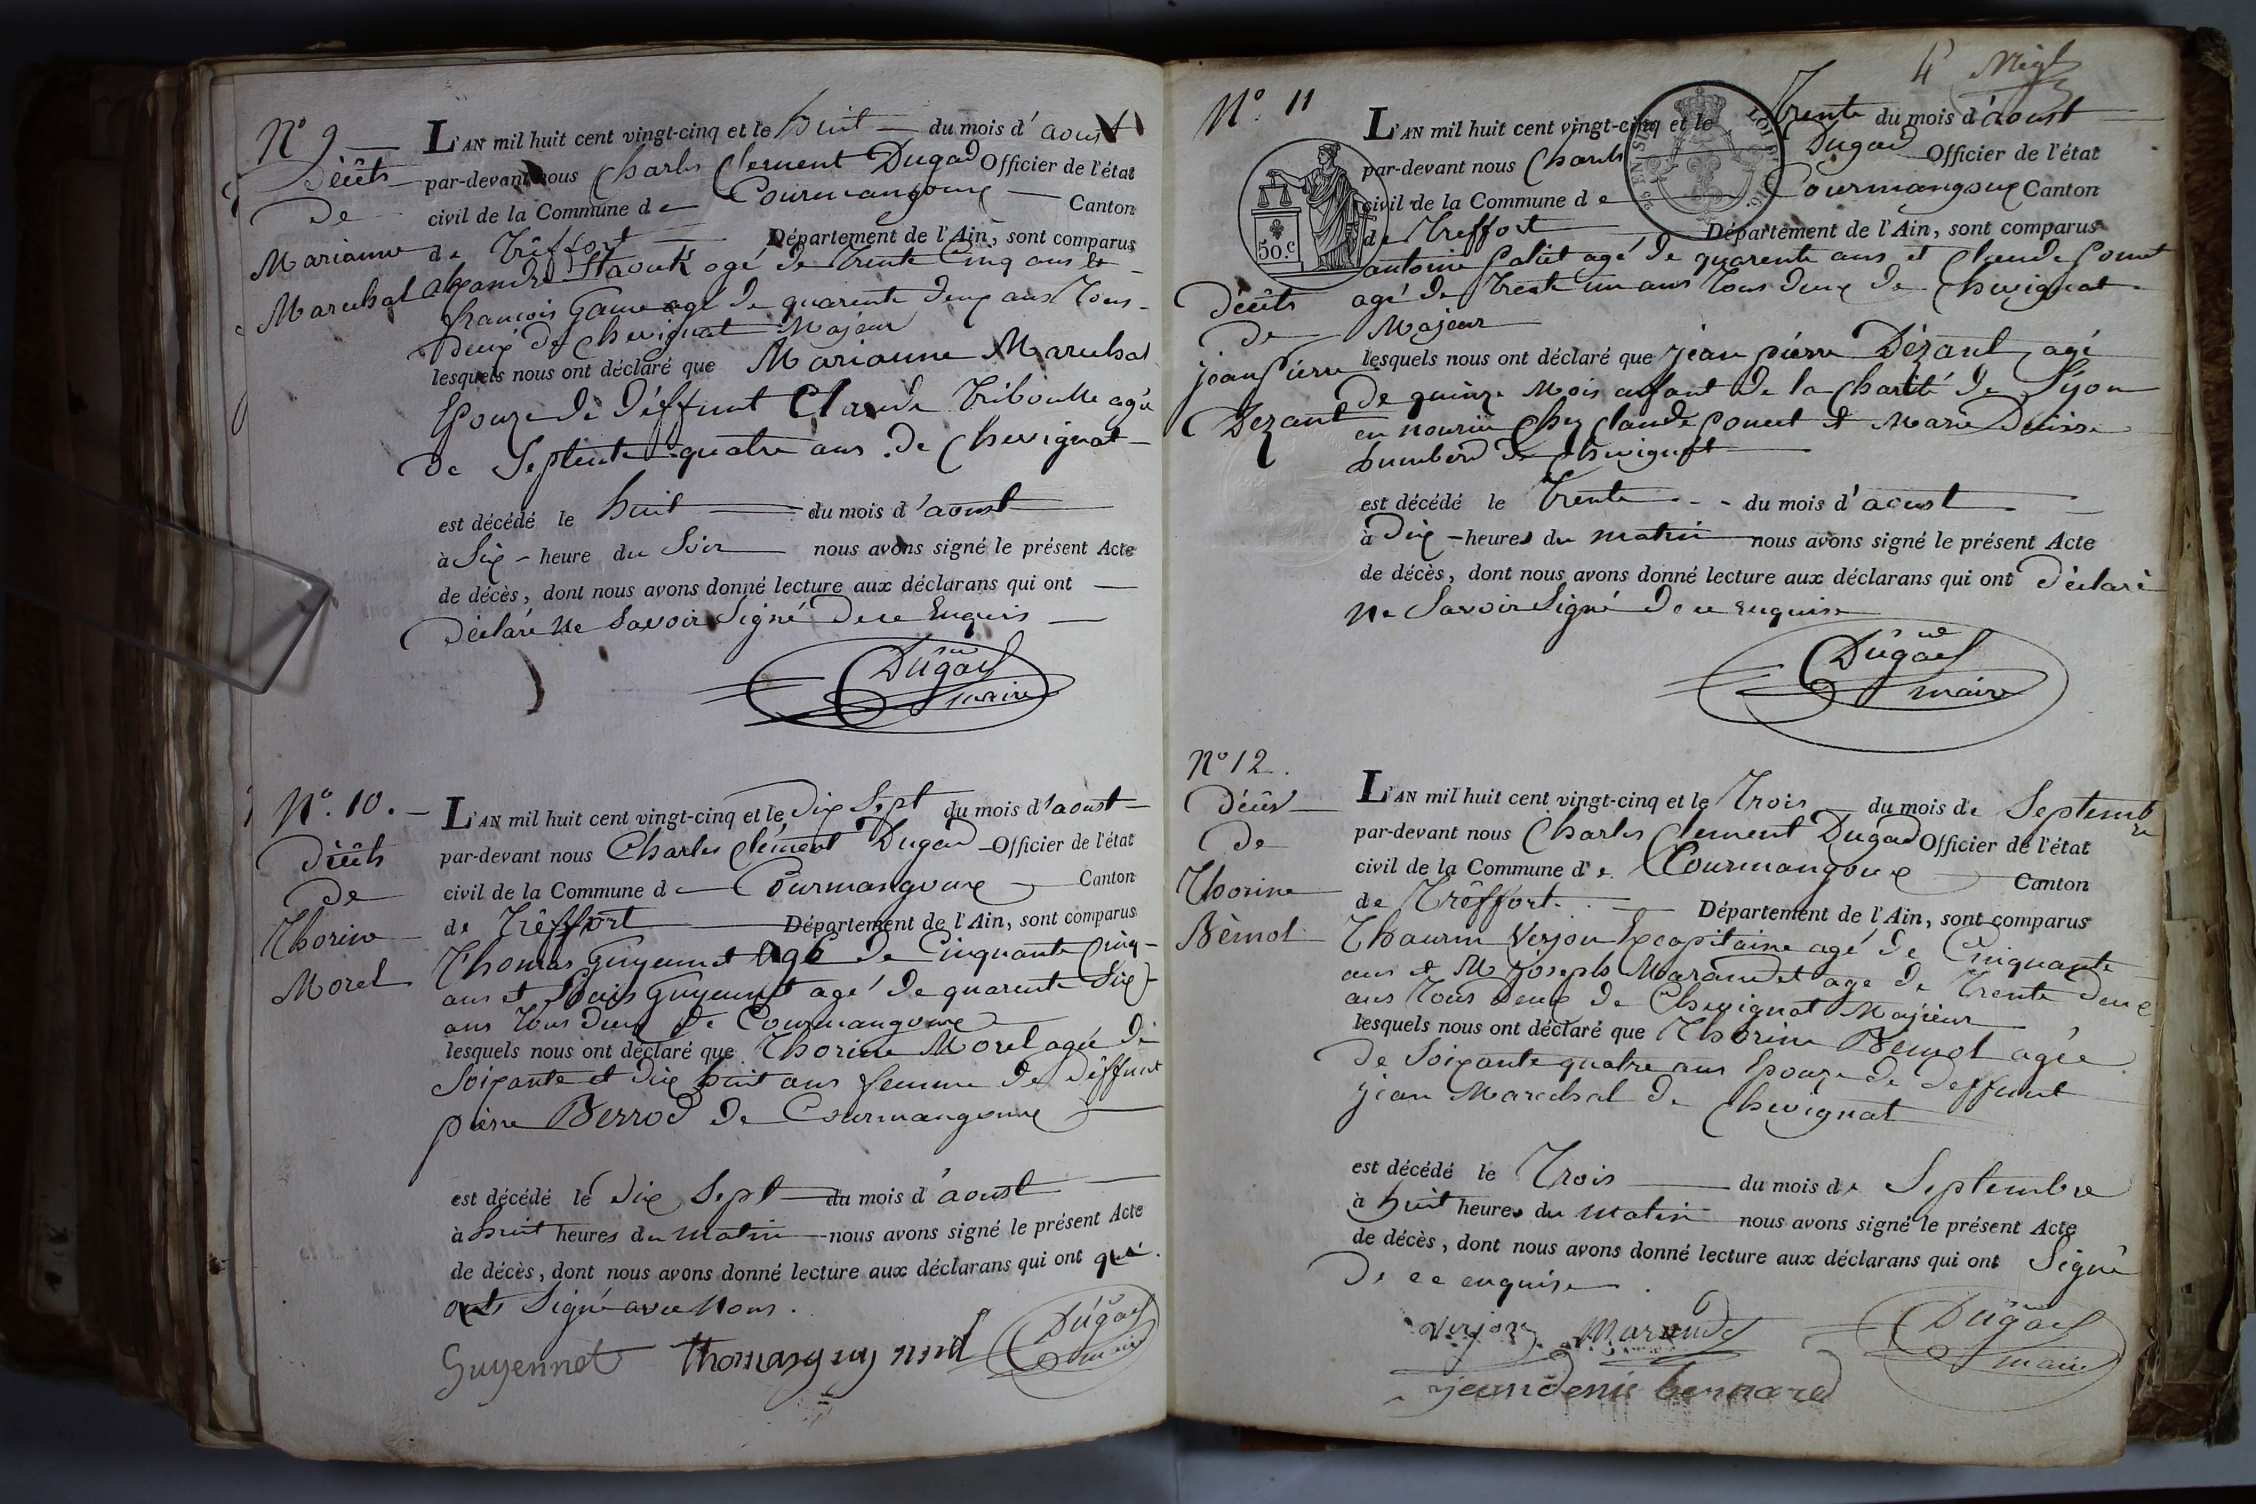 N° 9
Décès
de
Marianne
Marechal
L'AN mil huit cent vingt-cinq et le huit du mois d'aoust
par-devant nous Charles Clement Dugad Officier de l'état
civil de la Commune de Courmangoux Canton
de Trêffort Département de l'Ain, sont comparus
agé de trente Cinq ans et
francois Game agé de quarente deux ans tous
deux de Chevignat Majeur
lesquels nous ont déclaré que Marianne Marechal
Epouze de déffunt Claude Triboulle agée
de Septente quatre ans de Chevignat
est décédé le huit du mois d'aoust
à Six heure du Soir nous avons signé le présent Acte
de décès, dont nous avons donné lecture aux déclarans qui ont
déclaré Ne Savoir Signé de ce Enquis
Dugad
maire
N°. 10.
Décès
de
Thorine
Morel
L'AN mil huit cent vingt-cinq et le dix Sept du mois d'aoust
par-devant nous Charles Clément Dugad Officier de l'état
civil de la Commune de Courmangoux Canton
de Trêffort Département de l'Ain, sont comparus
Thomas Guyennet agé de Cinquante Cinq
ans et Louis Guyennet agé de quarente Six
ans tous deux de Courmangoux
lesquels nous ont déclaré que Thorine Morel agée de
Soixante et dix huit ans femme de déffunt
pierre Berrod de Courmangoux
est décédé le dix Sept du mois d'aoust
à huit heures du matin nous avons signé le présent Acte
de décès, dont nous avons donné lecture aux déclarans qui ont qui
onts Signé avec Nous.
Guyennet thomas guynned Dugad
maire
4e
N°. 11
50.c
Décès
de
jean Pierre
Dezant
L'AN mil huit cent vingt-cinq et le Trente du mois d'aoust
par-devant nous Charles Dugad Officier de l'état
civil de la Commune de Courmangoux Canton
de Treffort Département de l'Ain, sont comparus
antoine agé de quarente ans et Claude Poncet
agé de trente un ans tous deux de Chevignat
Majeur
lesquels nous ont déclaré que jean pierre Dézant agé
de quinze Mois anfant de la Charité de Lÿon
en nourice Chez Claude Poncet et Marie
humberd de Chevignat
est décédé le Trente du mois d'aoust
à dix heures du matin nous avons signé le présent Acte
de décès, dont nous avons donné lecture aux déclarans qui ont déclaré
Ne Savoir Signé de ce enquise
Dugad
maire
N° 12.
Décès
de
Thorine
Bèmol
L'AN mil huit cent vingt-cinq et le Trois du mois de Septembre
par-devant nous Charles Clement Dugad Officier de l'état
civil de la Commune de Courmangoux Canton
de Trêffort. Département de l'Ain, sont comparus
Thaurin Verjon Excapitaine agé de Cinquante
ans et M joseph Marandet age de Trente deux
ans tous deux de Chevignat Majieur
lesquels nous ont déclaré que Thorine Bemol agée
de Soixante quatre ans Epouze de deffunt
jean Marechal de Chevignat
est décédé le Trois du mois de Septembre
à huit heures du matin nous avons signé le présent Acte
de décès, dont nous avons donné lecture aux déclarans qui ont Signé
de ce enquise.
Verjon Marandet Dugad
maire
jeandenis bernard